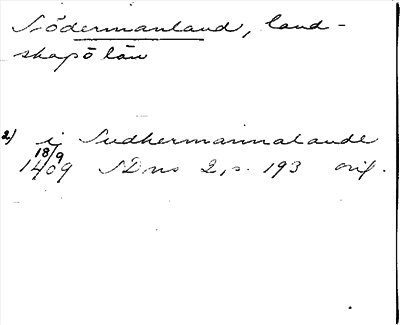 Södermanland, land-
skap ö län
2) i Sudhermannalande
18/9
1409 SD ns 2, s. 193 orig.